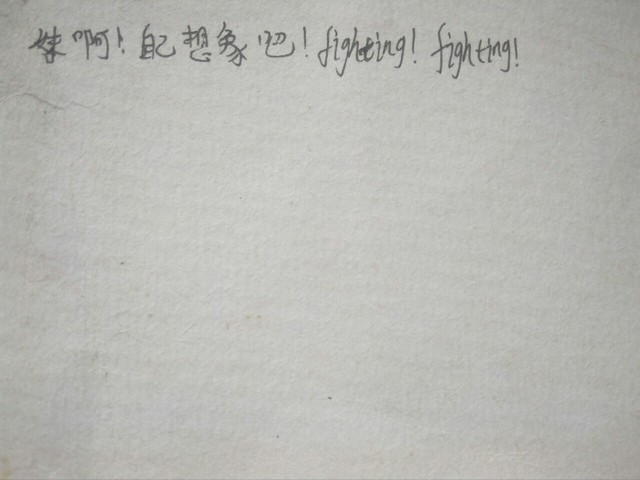 妹啊！自己想象吧！fighting！fighting！